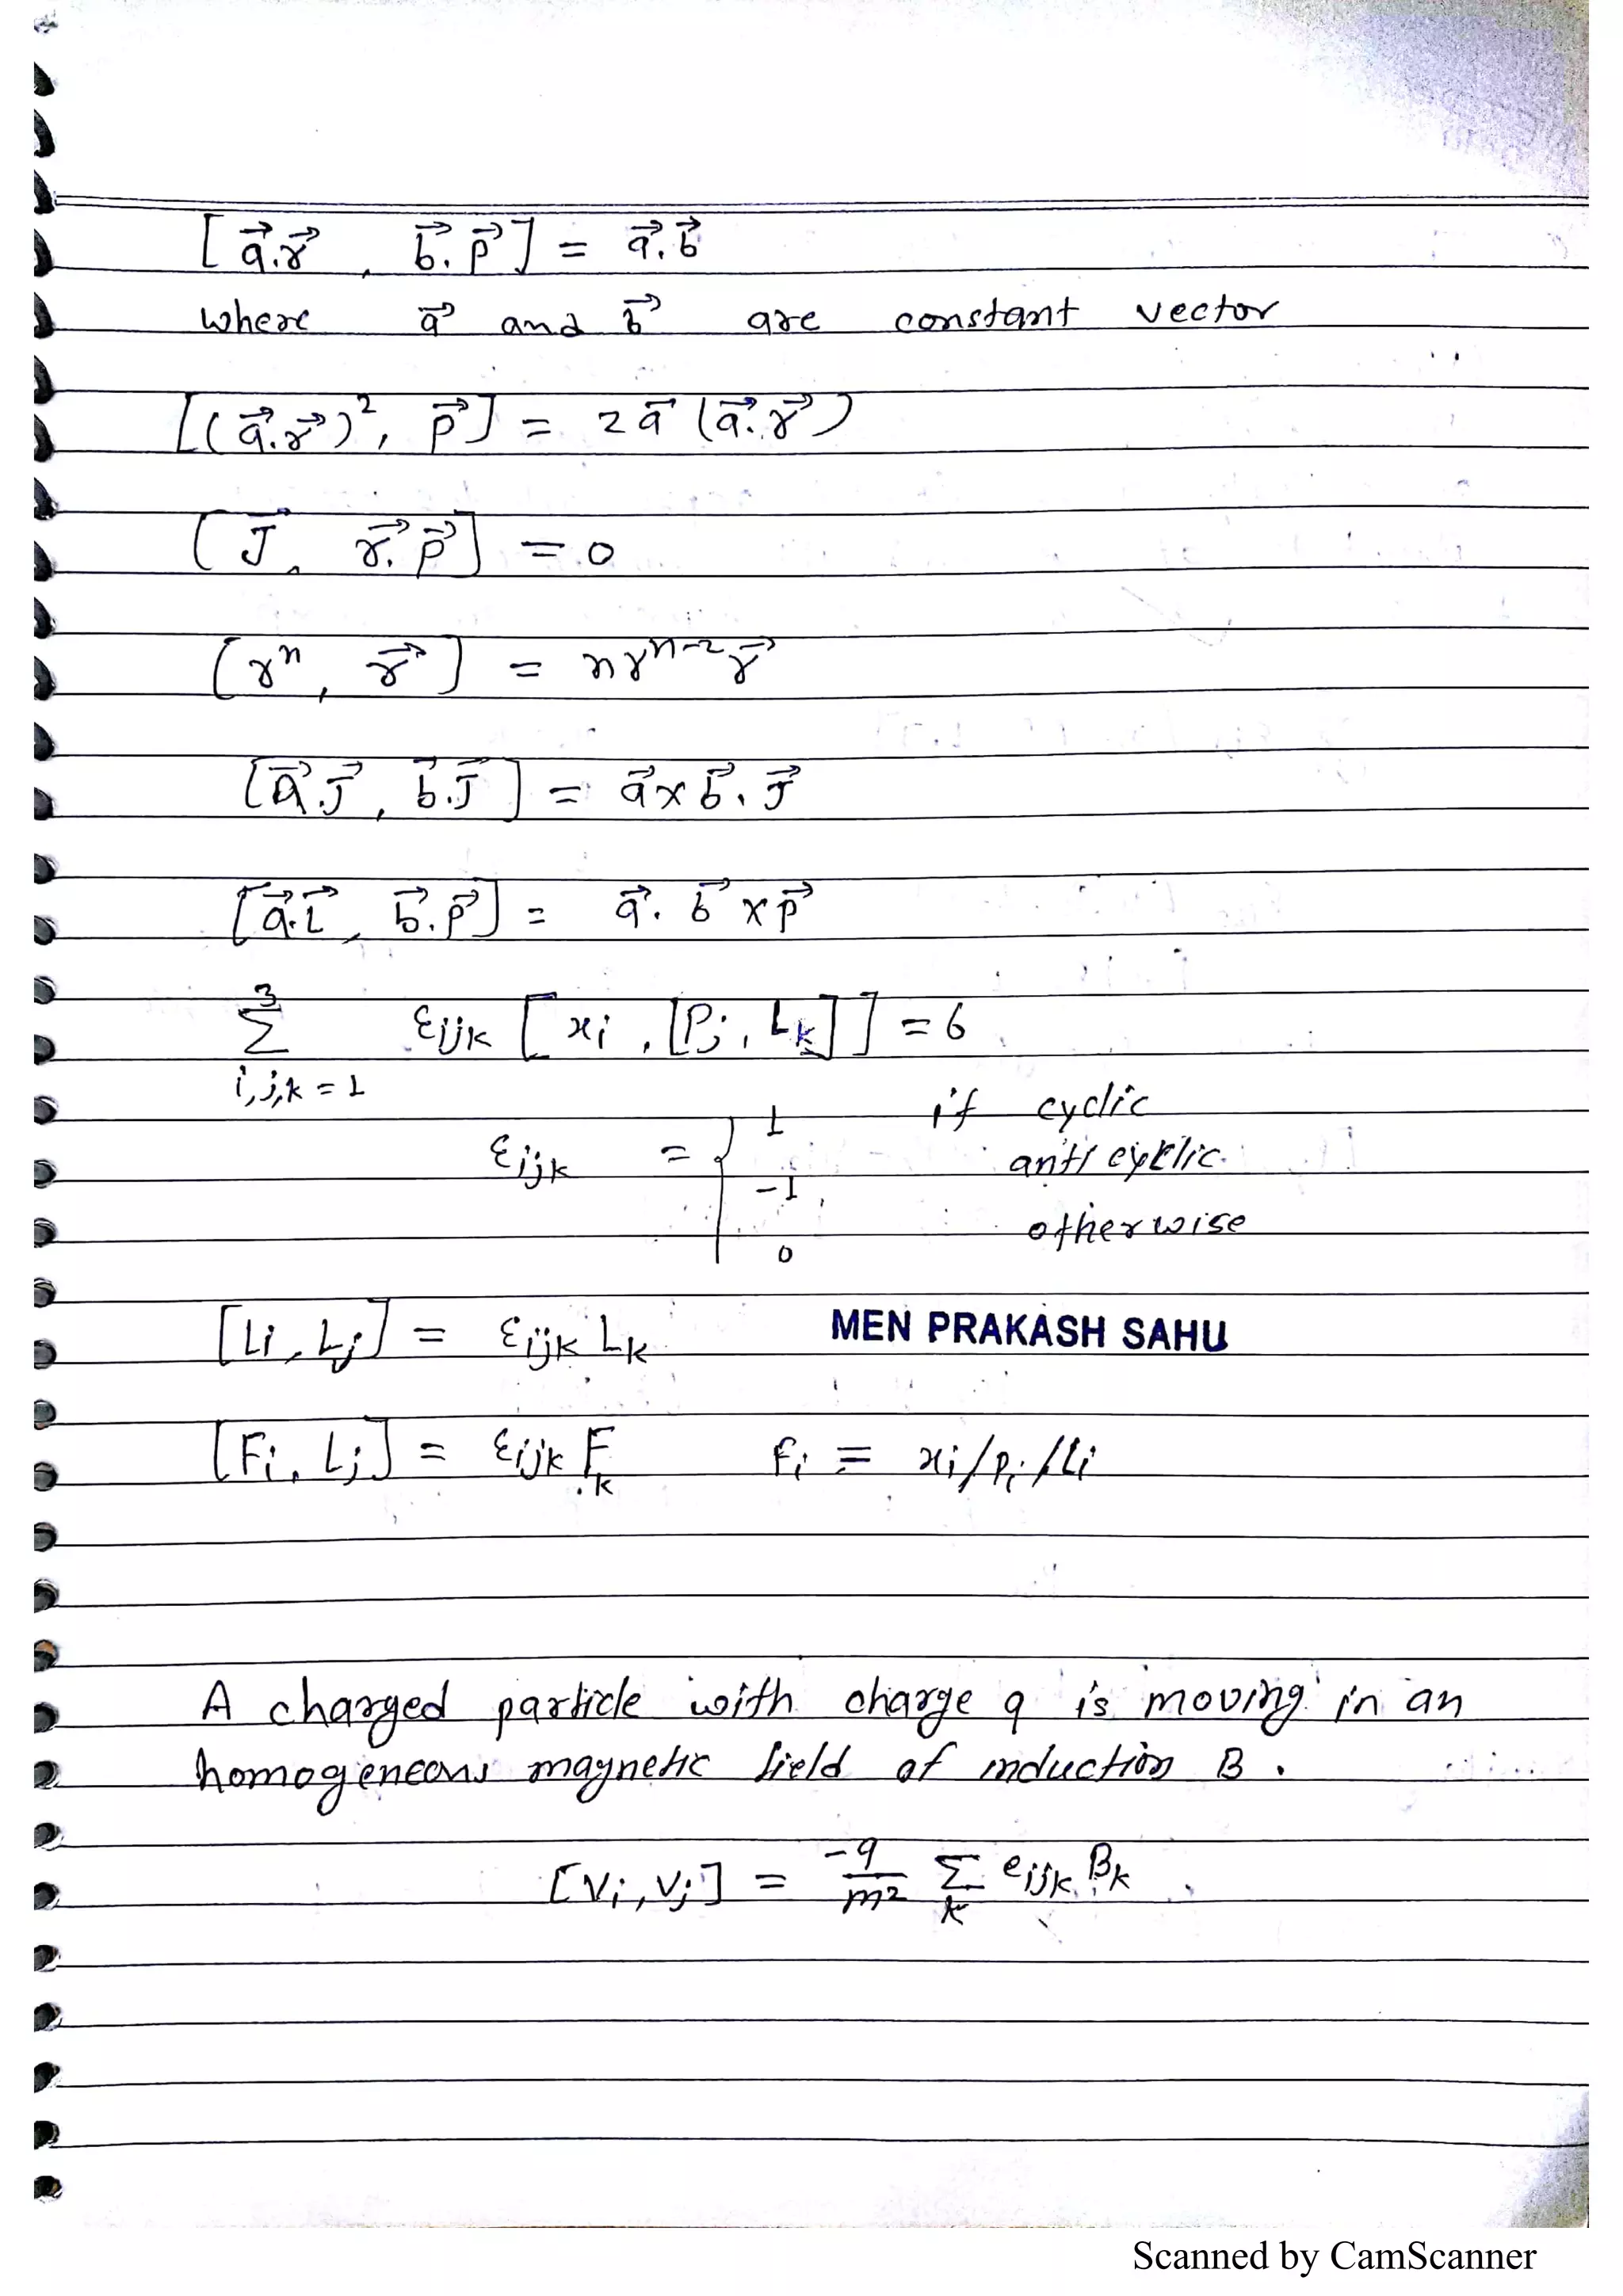 [a⃗.r⃗ , b⃗.p⃗] = a⃗.b⃗
where a⃗ and b⃗ are constant vector
[(a⃗.r⃗)², p⃗] = 2a⃗ (a⃗.r⃗)
[J⃗, r⃗.p⃗] = 0
[rⁿ, r⃗] = n rⁿ⁻² r⃗
[a⃗.J⃗, b⃗.J⃗] = a⃗×b⃗.J⃗
[a⃗.L⃗, b⃗.p⃗] = a⃗.b⃗×p⃗
3
Σ εijk [xi, [Pj, Lk]] = 6
i,j,k = 1
εijk = { 1 if cyclic
-1 anti cyclic
0 otherwise
[Li, Lj] = εijk Lk MEN PRAKASH SAHU
[Fi, Lj] = εijk Fk Fi = xi/pi/Li
A charged particle with charge q is moving in an
homogeneous magnetic field of induction B.
[vi, vj] = -q/m² Σk eijk Bk
Scanned by CamScanner